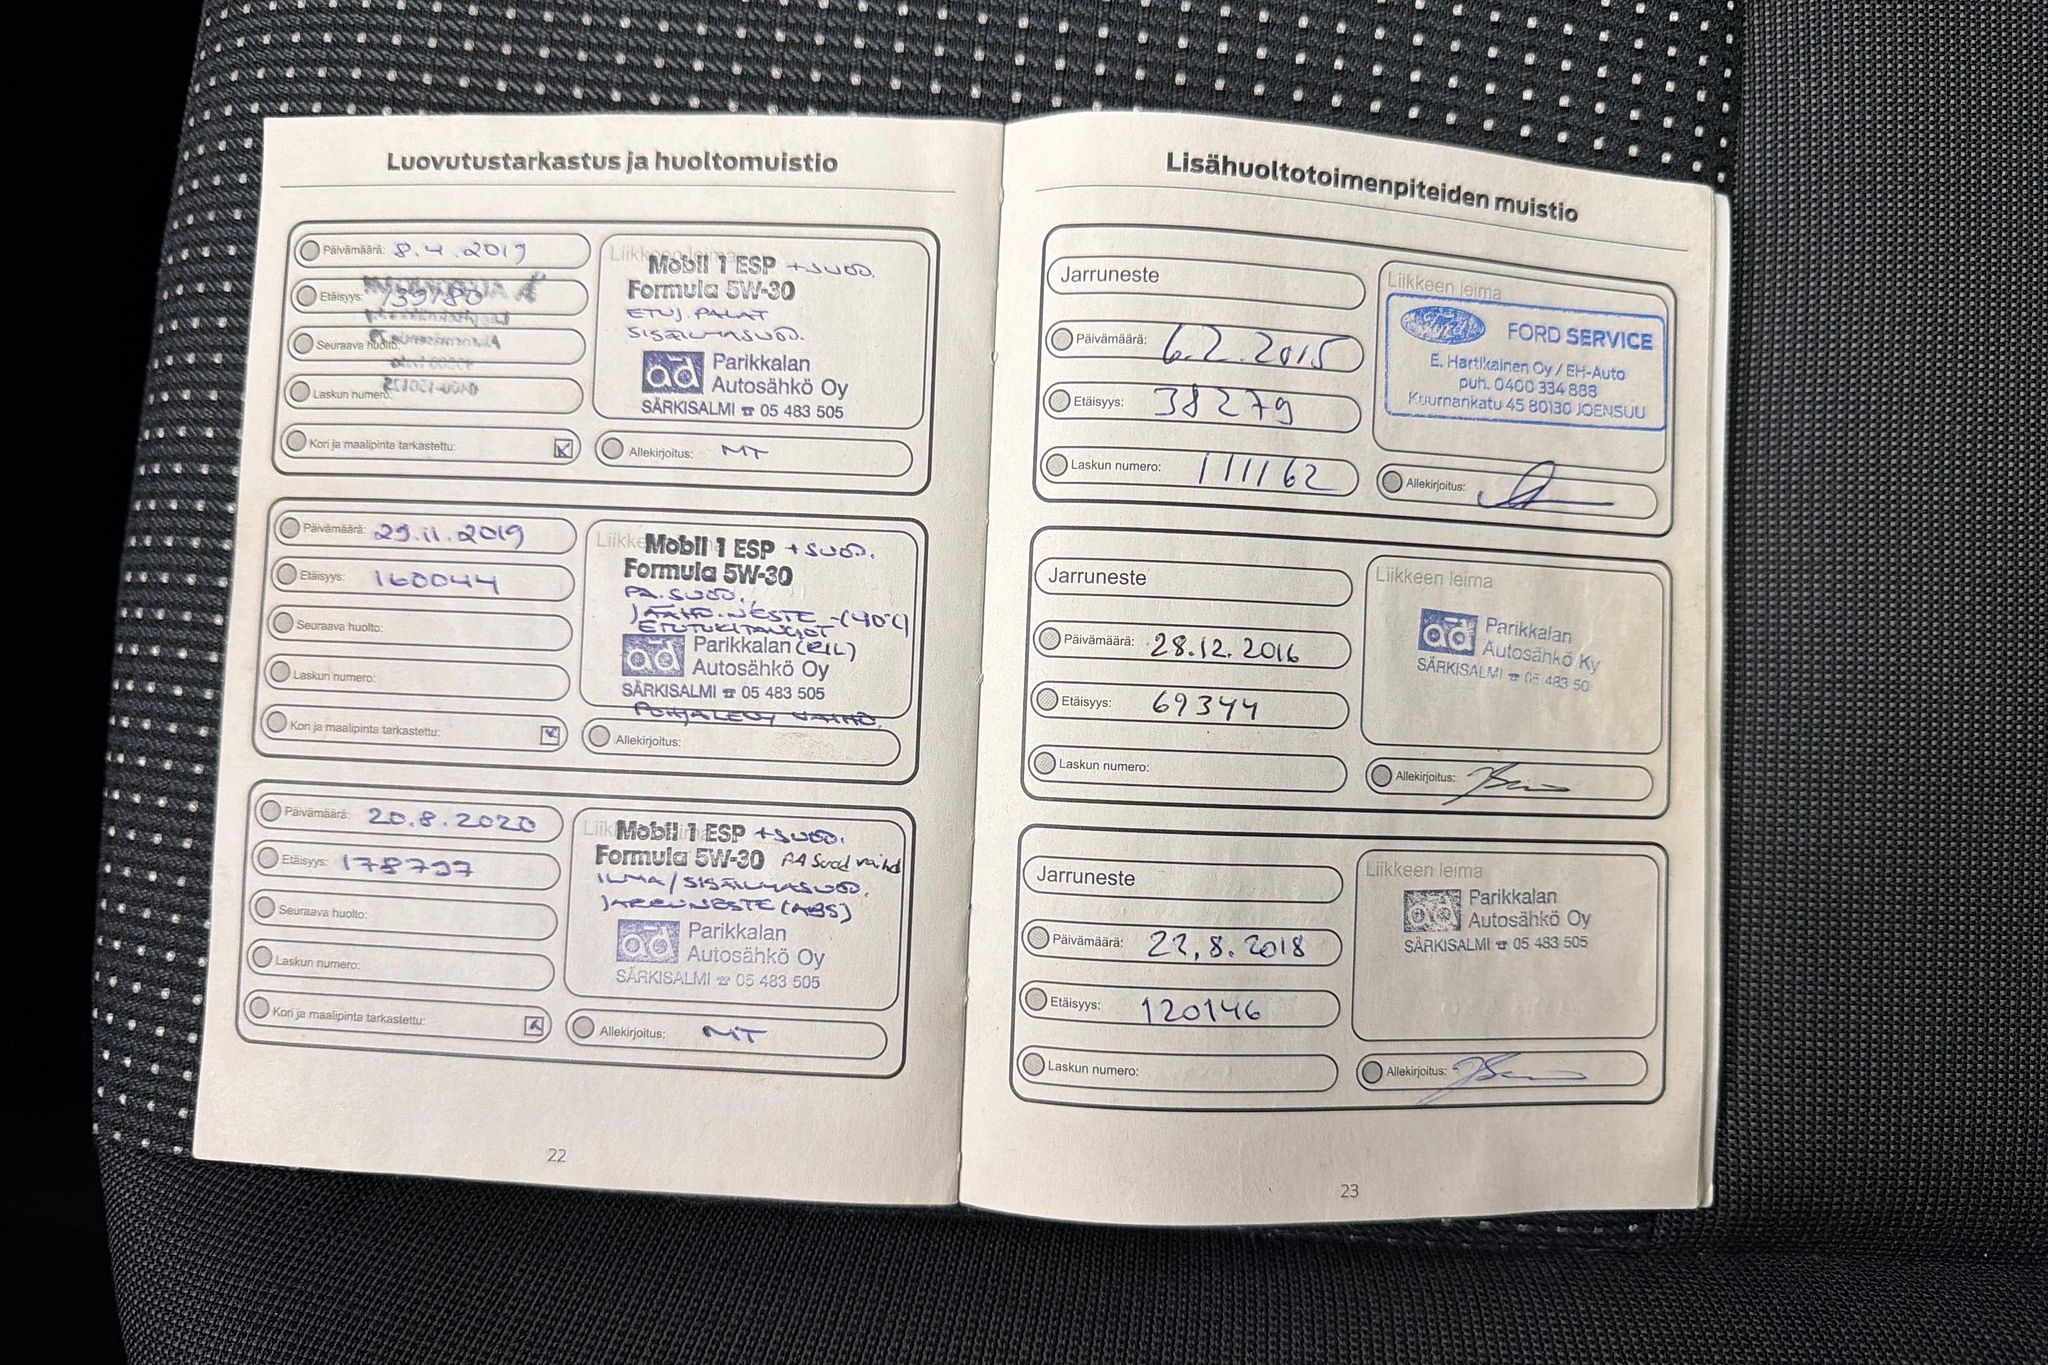 Luovutustarkastus ja huoltomuistio
Päivämäärä: 8.4.2019
Etäisyys: 139780
Seuraava huolto:
Laskun numero:
Kori ja maalipinta tarkastettu:
Liikkeen leima
Mobil 1 ESP +SUOD.
Formula 5W-30
ETUJ. PALAT
SISÄILMASUOD.
ad Parikkalan
Autosähkö Oy
SÄRKISALMI ☎ 05 483 505
Allekirjoitus: MT
Päivämäärä: 29.11.2019
Etäisyys: 160044
Seuraava huolto:
Laskun numero:
Kori ja maalipinta tarkastettu:
Liikkeen leima
Mobil 1 ESP +SUOD.
Formula 5W-30
PA.SUOD.,
JÄÄHD.NESTE -(40°C)
ETUTUKITANGOT
ad Parikkalan (RIL)
Autosähkö Oy
SÄRKISALMI ☎ 05 483 505
POHJALEVY VAIHD.
Allekirjoitus:
Päivämäärä: 20.8.2020
Etäisyys: 178797
Seuraava huolto:
Laskun numero:
Kori ja maalipinta tarkastettu:
Liikkeen leima
Mobil 1 ESP +SUOD.
Formula 5W-30 PA Suod vaihd
ILMA/SISÄILMASUOD.
JARRUNESTE (ABS)
ad Parikkalan
Autosähkö Oy
SÄRKISALMI ☎ 05 483 505
Allekirjoitus: MT
22
Lisähuoltotoimenpiteiden muistio
Jarruneste
Päivämäärä: 6.2.2015
Etäisyys: 38279
Laskun numero: 111162
Liikkeen leima
Ford FORD SERVICE
E. Hartikainen Oy / EH-Auto
puh. 0400 334 888
Kuurnankatu 45 80130 JOENSUU
Allekirjoitus:
Jarruneste
Päivämäärä: 28.12.2016
Etäisyys: 69344
Laskun numero:
Liikkeen leima
ad Parikkalan
Autosähkö Ky
SÄRKISALMI ☎ 05 483 50
Allekirjoitus:
Jarruneste
Päivämäärä: 22.8.2018
Etäisyys: 120146
Laskun numero:
Liikkeen leima
ad Parikkalan
Autosähkö Oy
SÄRKISALMI ☎ 05 483 505
Allekirjoitus:
23